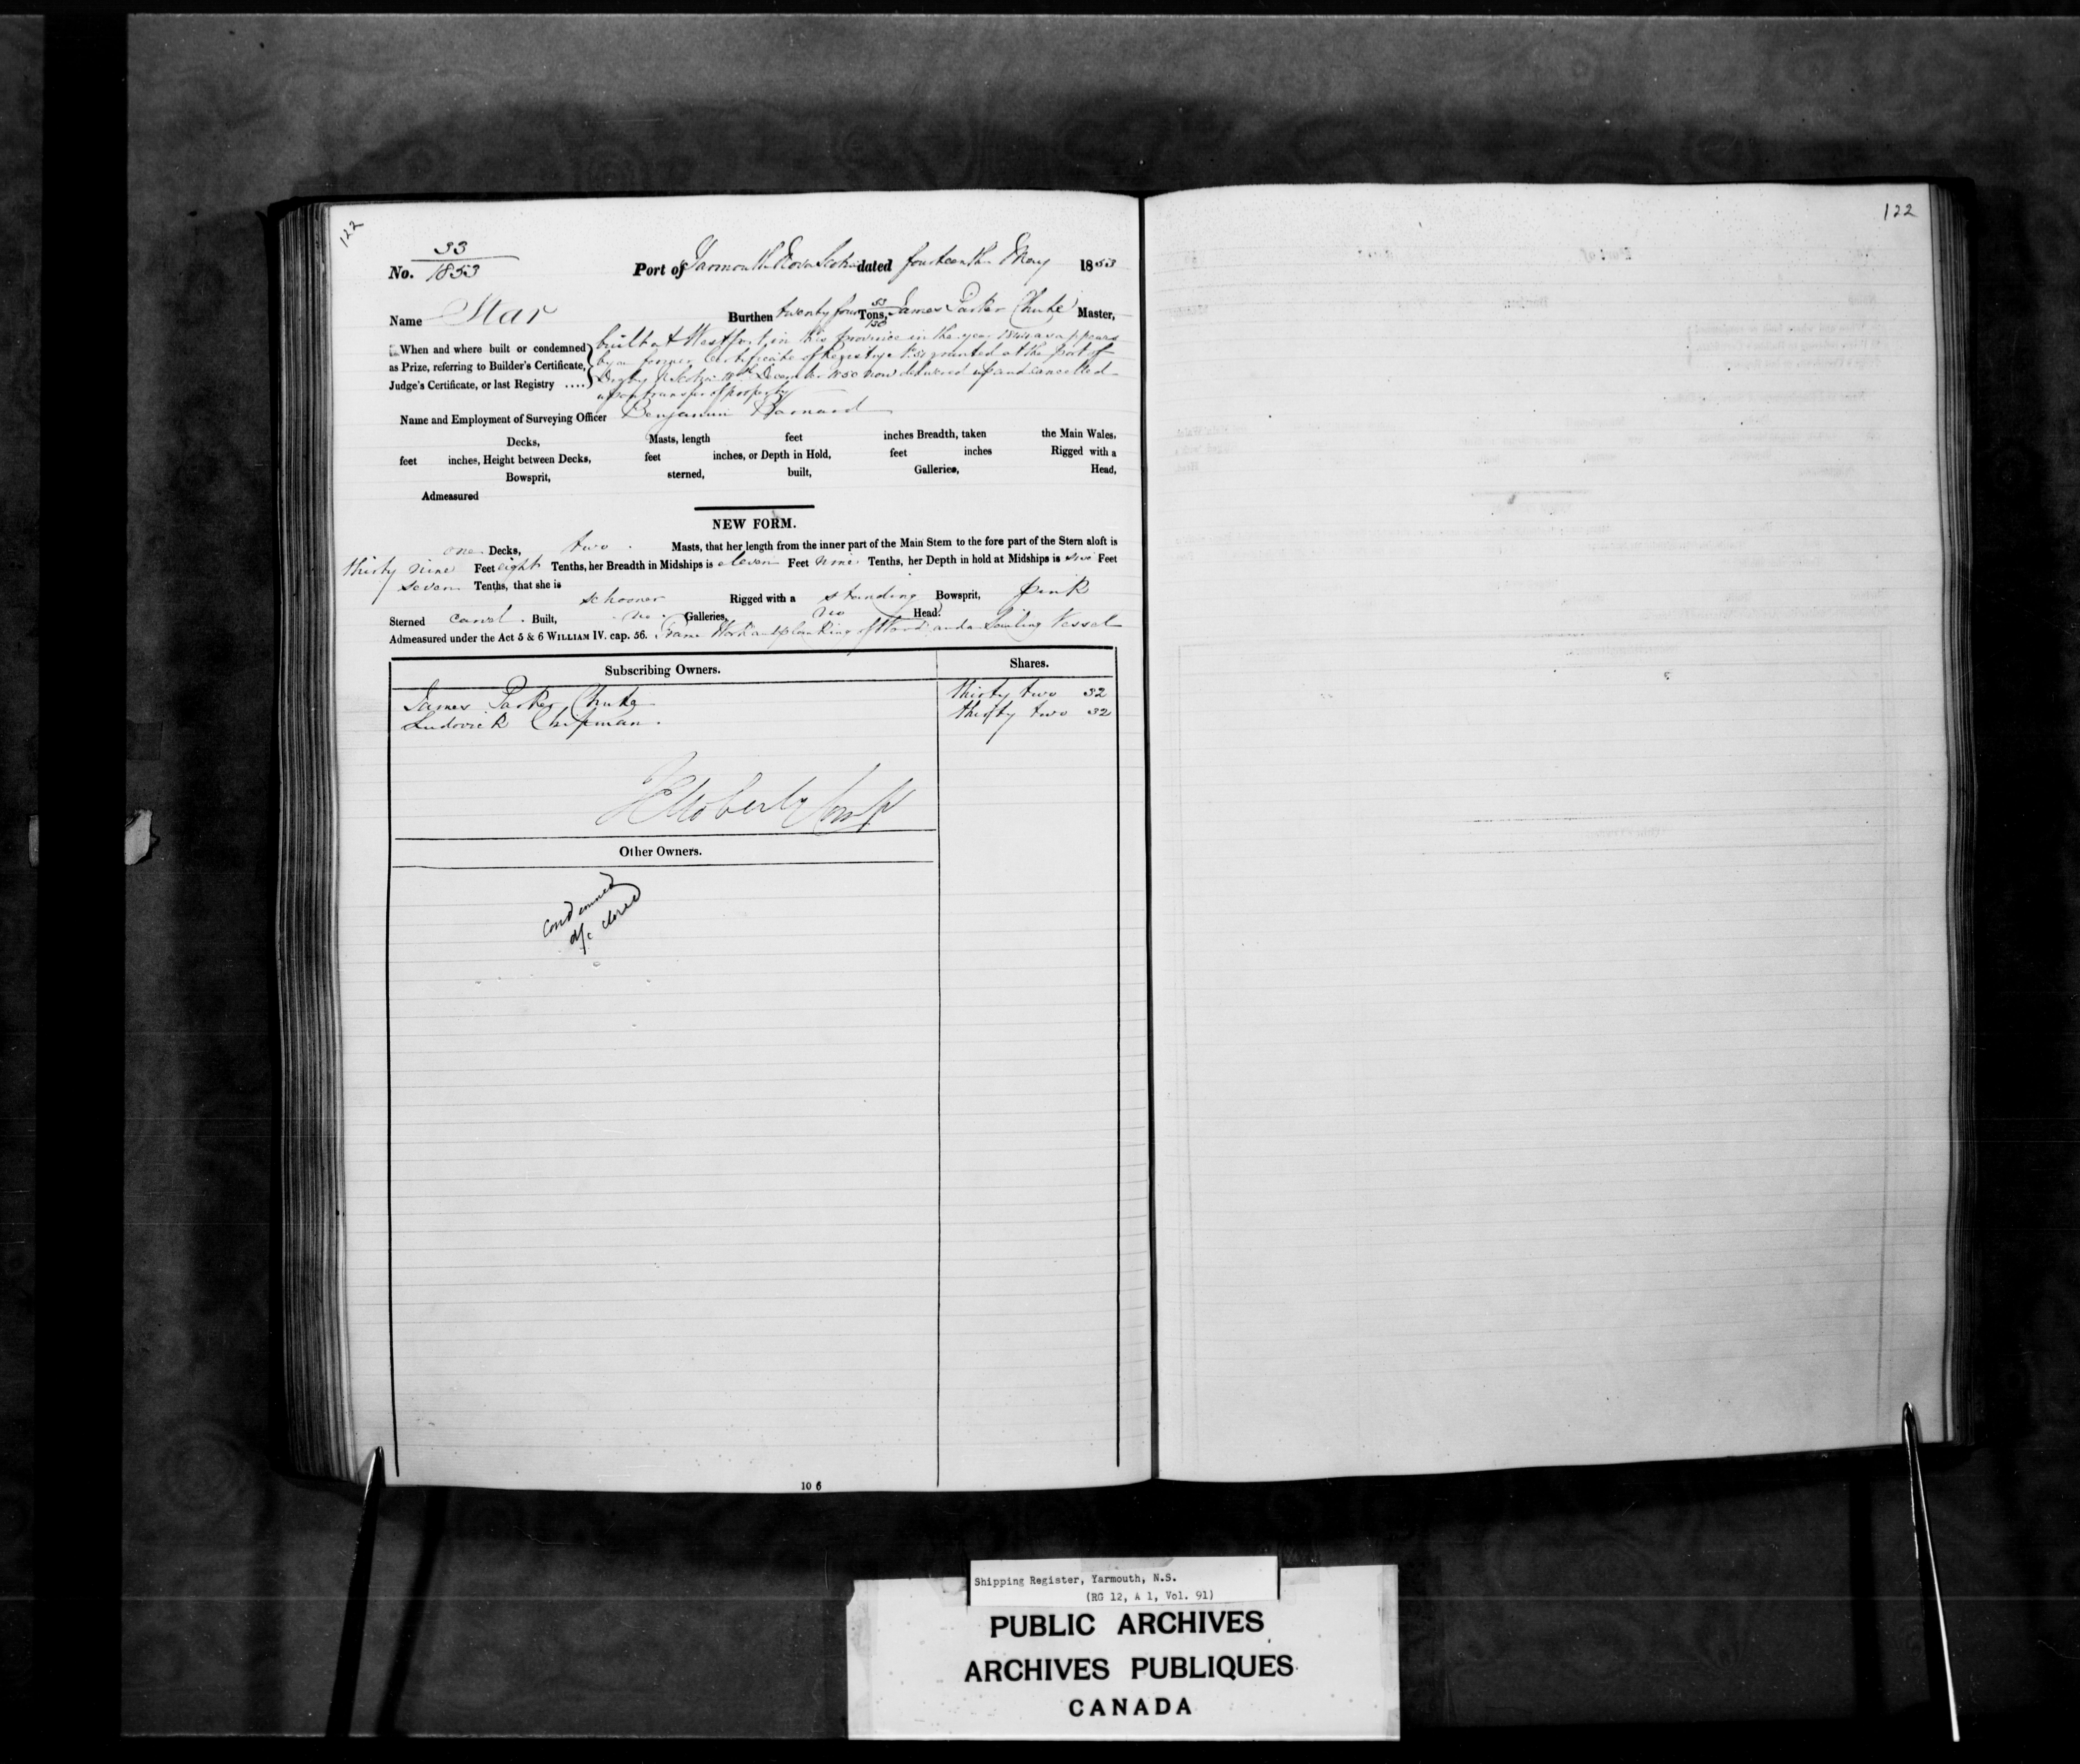 122
122
No. 33/1853 Port of Yarmouth Nova Scotia dated fourteenth May 1853
Name Star Burthen twenty four 53/130 Tons, James Parker Chute Master,
When and where built or condemned as Prize, referring to Builder's Certificate, Judge's Certificate, or last Registry ....
built at Westport in this province in the year 1844 as appears
by a former Certificate of Registry granted at the port of
Digby N Scotia December 1850 now delivered up and cancelled
upon transfer of property
Name and Employment of Surveying Officer Benjamin Barnard
Decks, Masts, length feet inches Breadth, taken the Main Wales,
feet inches, Height between Decks, feet inches, or Depth in Hold, feet inches Rigged with a
Bowsprit, sterned, built, Galleries, Head,
Admeasured
NEW FORM.
one Decks, two Masts, that her length from the inner part of the Main Stem to the fore part of the Stern aloft is
thirty nine Feet eight Tenths, her Breadth in Midships is eleven Feet nine Tenths, her Depth in hold at Midships is six Feet
seven Tenths, that she is schooner Rigged with a standing Bowsprit, pink
Sterned carvel Built, no Galleries, no Head.
Admeasured under the Act 5 & 6 WILLIAM IV. cap. 56. Frame Work and planking of Wood and a Sailing Vessel
Subscribing Owners. Shares.
James Parker Chute thirty two 32
Ludovick Chipman. thirty two 32
Other Owners.
condemned
a/c closed
10 6
Shipping Register, Yarmouth, N.S.
(RG 12, A 1, Vol. 91)
PUBLIC ARCHIVES
ARCHIVES PUBLIQUES
CANADA